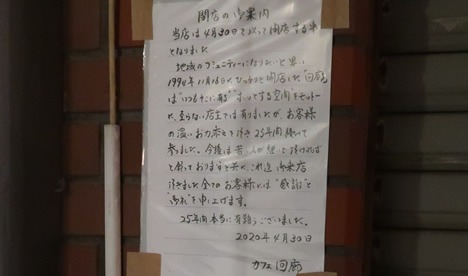 閉店の御案内
当店は4月30日を以って閉店する事
となりました
地域のコミュニティーになりたいと思い
1994年11月16日にひっそりと開店した"回廊"
は"いつもそこに有る" ほっとする空間をモットー
に、至らない店主では有りましたが、お客様
の温いお力添えを頂き25年間続いて
参りました。今後は昔
と願っておりますと共に、これ迄御来店
頂きました全てのお客様には"感謝"と
"御礼"を申し上げます。
25年間本当に有難うございました。
2020年4月30日
カフェ 回廊